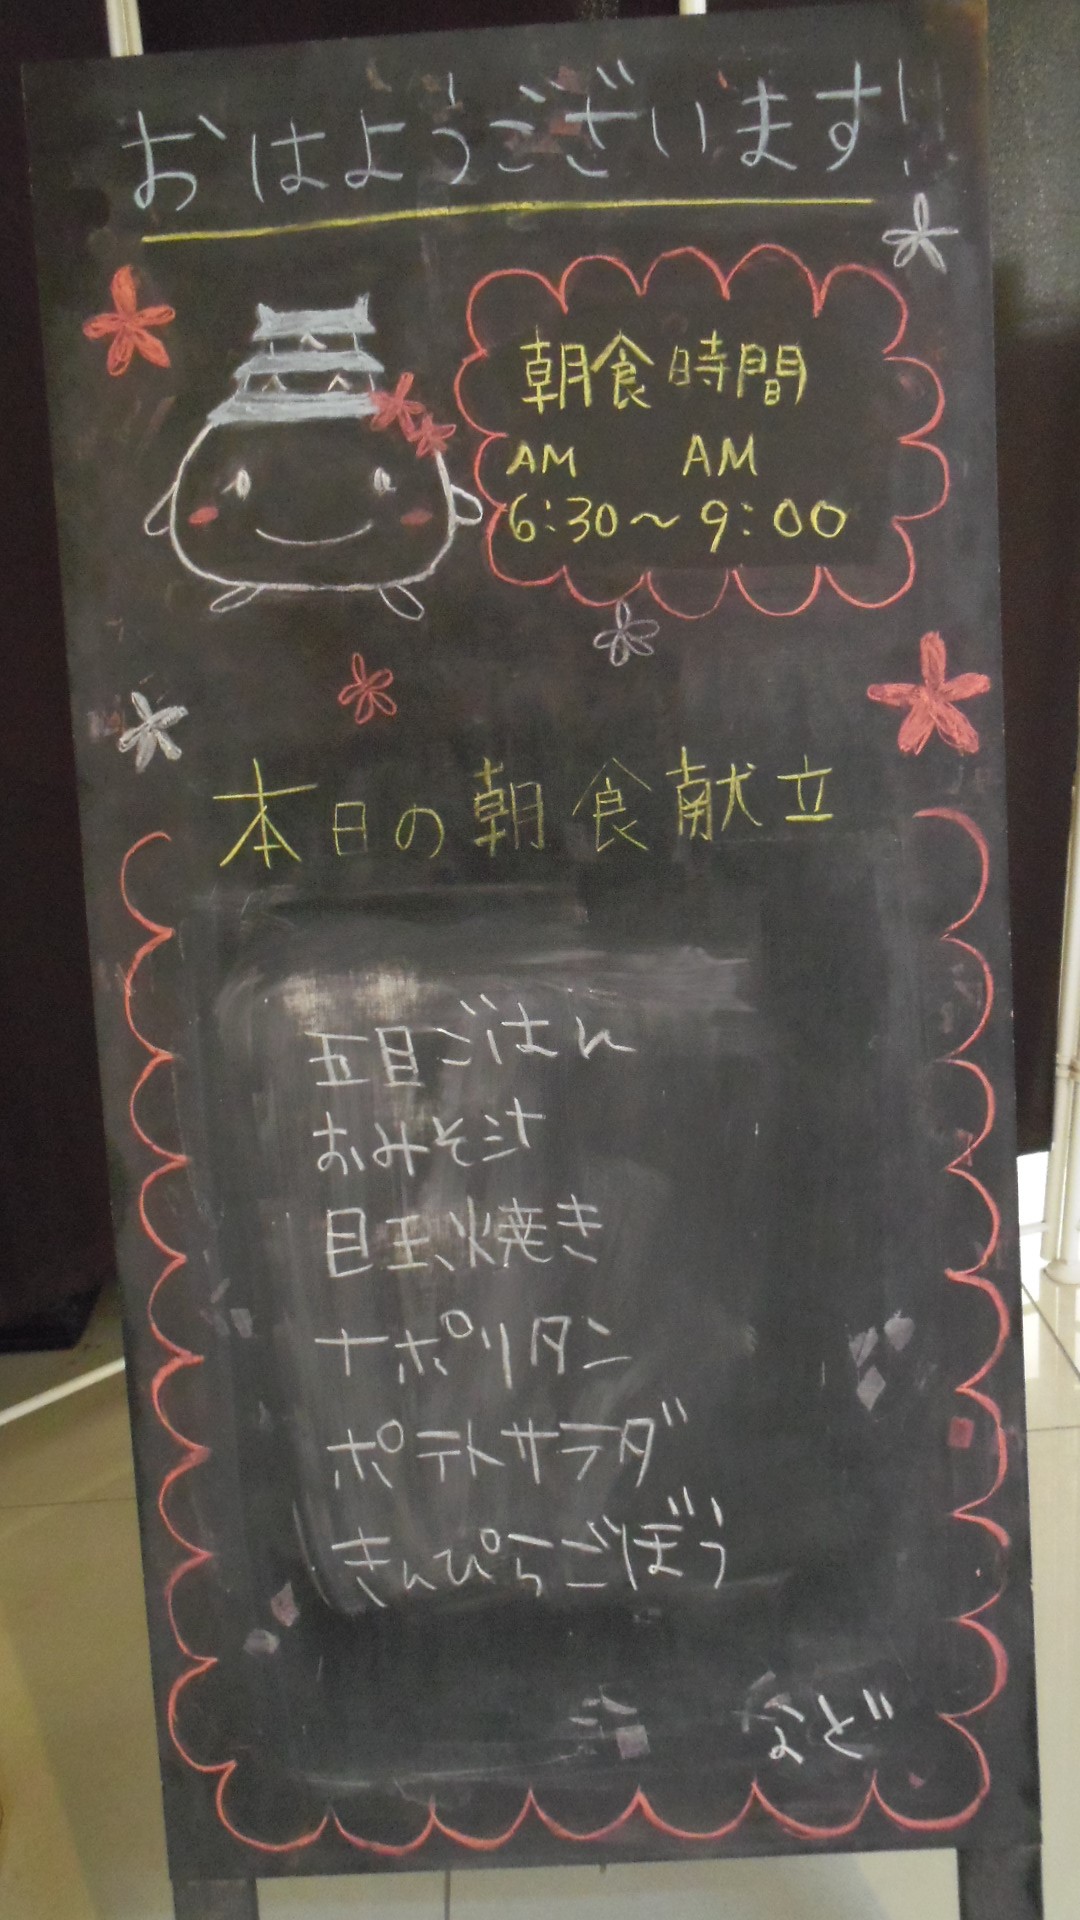 おはようございます!
朝食時間
AM AM
6:30～9:00
本日の朝食献立
五目ごはん
おみそ汁
目玉焼き
ナポリタン
ポテトサラダ
きんぴらごぼう
など